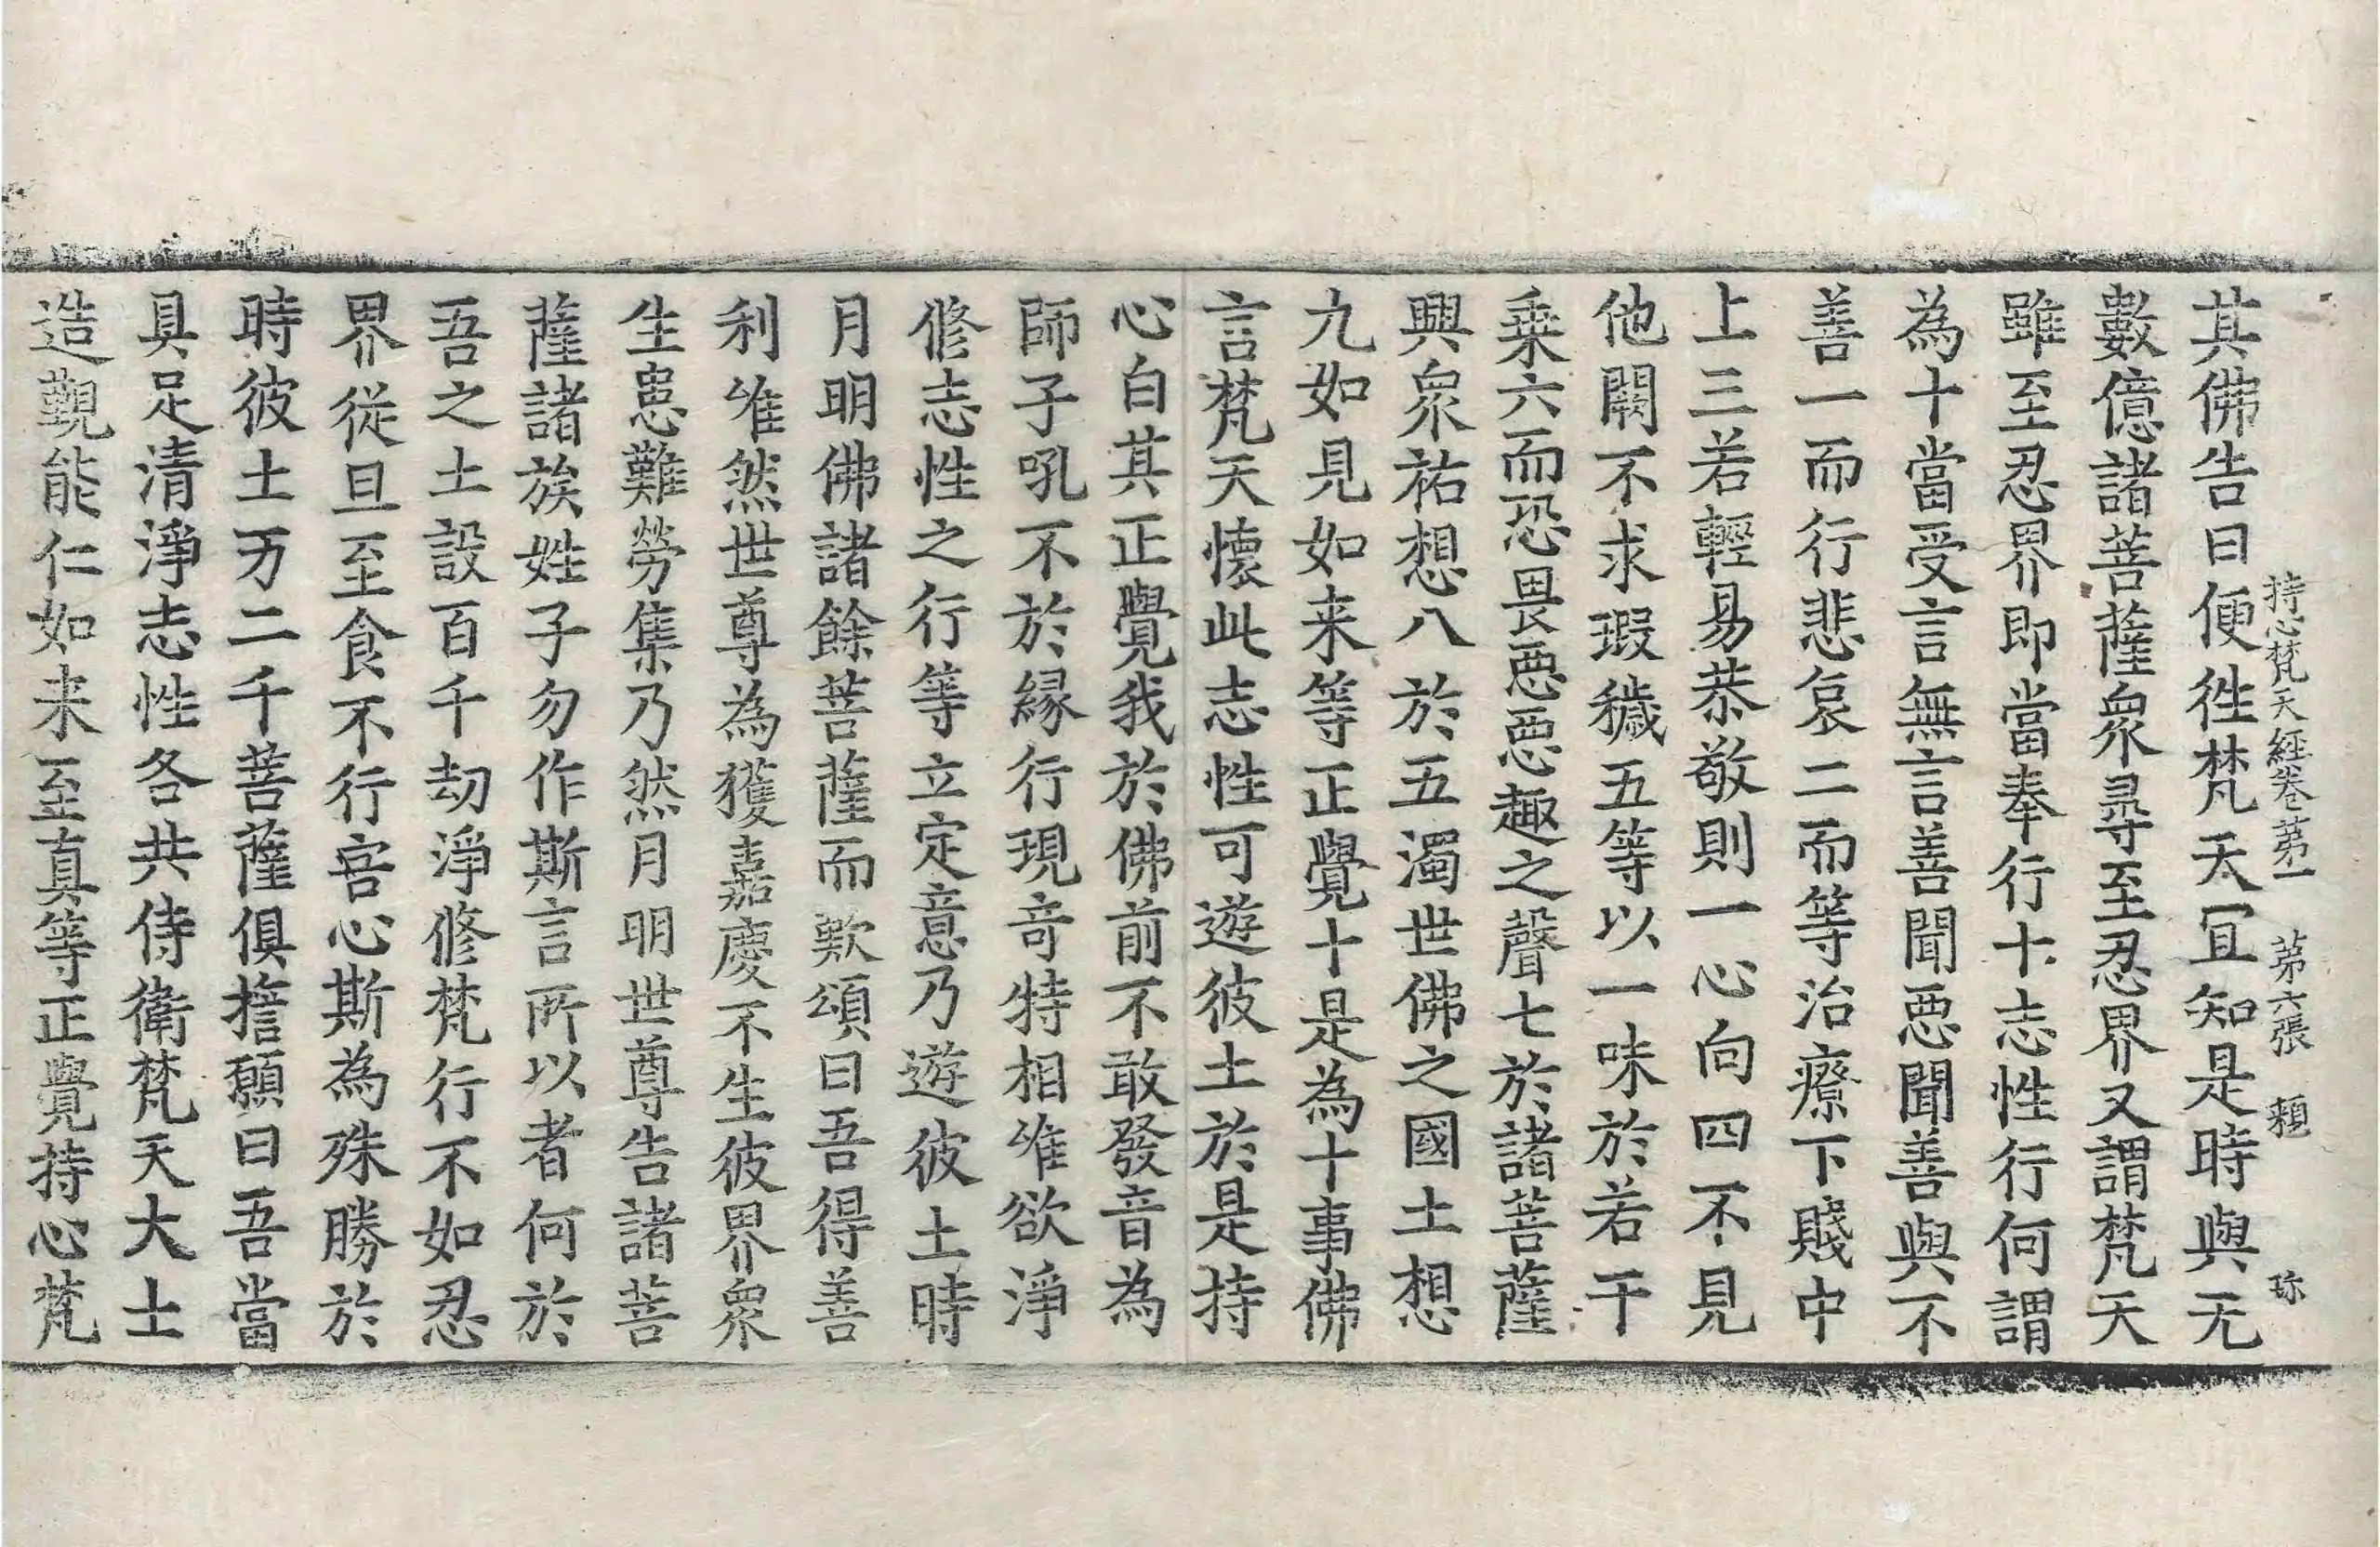 持心梵天經卷苐一 苐六張 頛 珎
其佛告曰便徃梵天冝知是時與无
數億諸菩薩衆尋至忍界又謂梵天
雖至忍界即當奉行十志性行何謂
為十當受言無言善聞惡聞善與不
善一而行悲哀二而等治療下賤中
上三若輕易恭敬則一心向四不見
他闕不求瑕穢五等以一味於若干
乗六而恐畏惡惡趣之聲七於諸菩薩
興衆祐想八於五濁世佛之國土想
九如見如来等正覺十是為十事佛
言梵天懷此志性可遊彼土於是持
心白其正覺我於佛前不敢發音為
師子吼不於縁行現竒特相唯欲淨
修志性之行等立定意乃遊彼土時
月明佛諸餘菩薩而歎頌曰吾得善
利唯然世尊為獲嘉慶不生彼界衆
生患難勞集乃然月明世尊告諸菩
薩諸族姓子勿作斯言所以者何於
吾之土設百千劫淨修梵行不如忍
界從旦至食不行害心斯為殊勝於
時彼土万二千菩薩俱擔願曰吾當
具足清淨志性各共侍衛梵天大士
造觀能仁如来至真等正覺持心梵